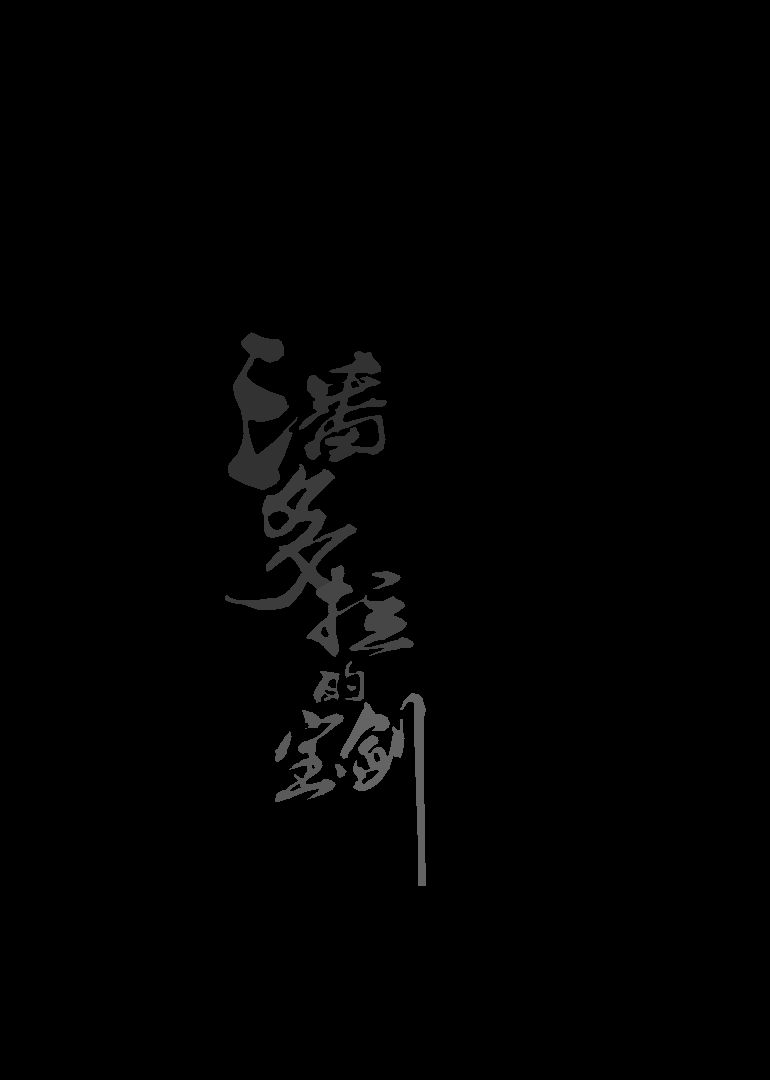 潘多拉的宝剑